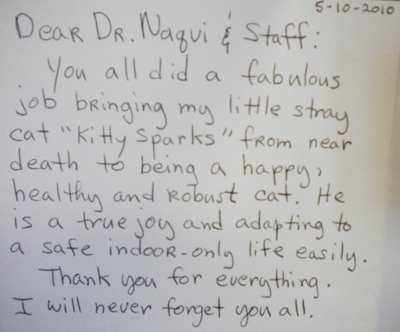 5-10-2010
Dear Dr. Naqui & Staff:
You all did a fabulous
job bringing my little stray
cat "Kitty Sparks" from near
death to being a happy,
healthy and robust cat. He
is a true joy and adapting to
a safe indoor-only life easily.
Thank you for everything.
I will never forget you all.